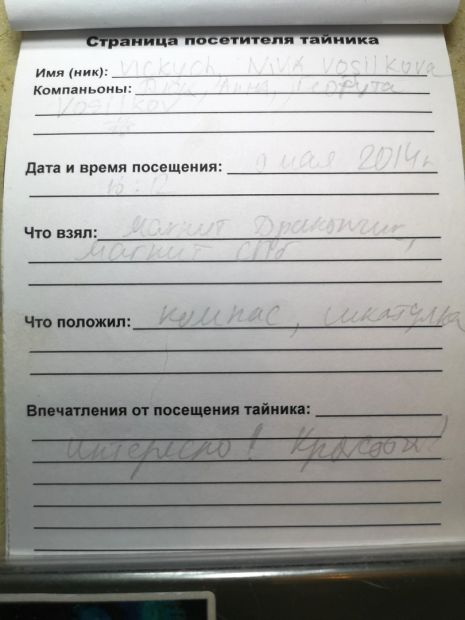 Страница посетителя тайника
Имя (ник): Vickych, NiVA Vosilkova
Компаньоны: Анна,
Vosilkov
Дата и время посещения: 9 мая 2014 г
Что взял: Магнит Дракончик,
Магнит СПб
Что положил: компас, шкатулка
Впечатления от посещения тайника:
Интересно! Красота!